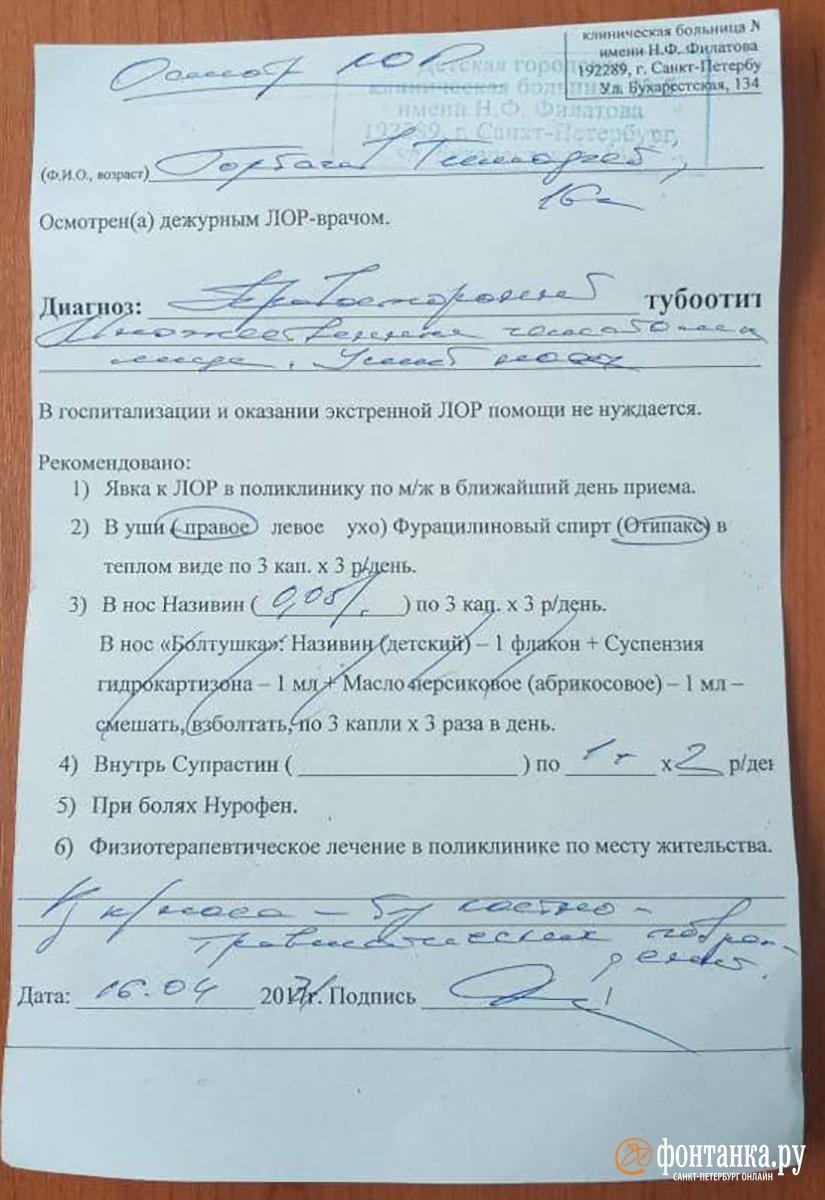 клиническая больница N
имени Н.Ф. Филатова
192289, г. Санкт-Петербу
Ул. Бухарестская, 134
Осмотр ЛОР
Детская городс
клиническая больни
имени Н.Ф. Филатова
192289, г. Санкт-Петербург,
(Ф.И.О., возраст) Горбачев Тимофей,
16 л
Осмотрен(а) дежурным ЛОР-врачом.
Диагноз: Правосторонний тубоотит
Множественные гематомы
лица. Ушиб носа
В госпитализации и оказании экстренной ЛОР помощи не нуждается.
Рекомендовано:
1) Явка к ЛОР в поликлинику по м/ж в ближайший день приема.
2) В уши ( правое левое ухо) Фурацилиновый спирт (Отипакс) в
теплом виде по 3 кап. х 3 р/день.
3) В нос Називин ( 0,05% ) по 3 кап. х 3 р/день.
В нос «Болтушка»: Називин (детский) – 1 флакон + Суспензия
гидрокартизона – 1 мл + Масло персиковое (абрикосовое) – 1 мл –
смешать, взболтать, по 3 капли х 3 раза в день.
4) Внутрь Супрастин ( ) по 1 т х 2 р/ден
5) При болях Нурофен.
6) Физиотерапевтическое лечение в поликлинике по месту жительства.
к/носа – б/ костно-
травматических повреж-
дений.
Дата: 16.04 201 г. Подпись /
фонтанка.ру
САНКТ-ПЕТЕРБУРГ ОНЛАЙН